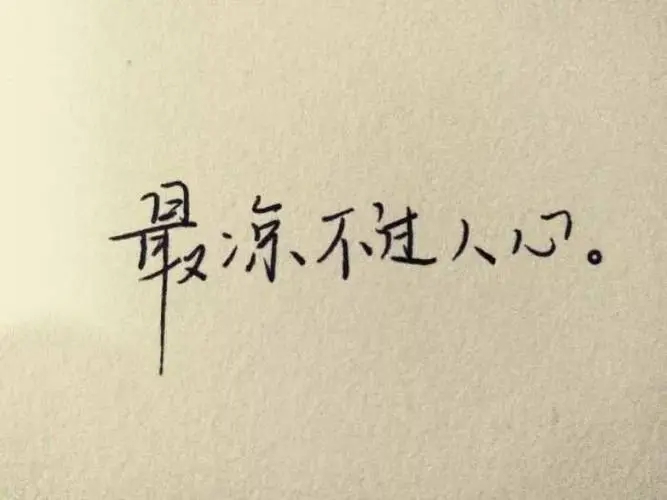 最凉不过人心。